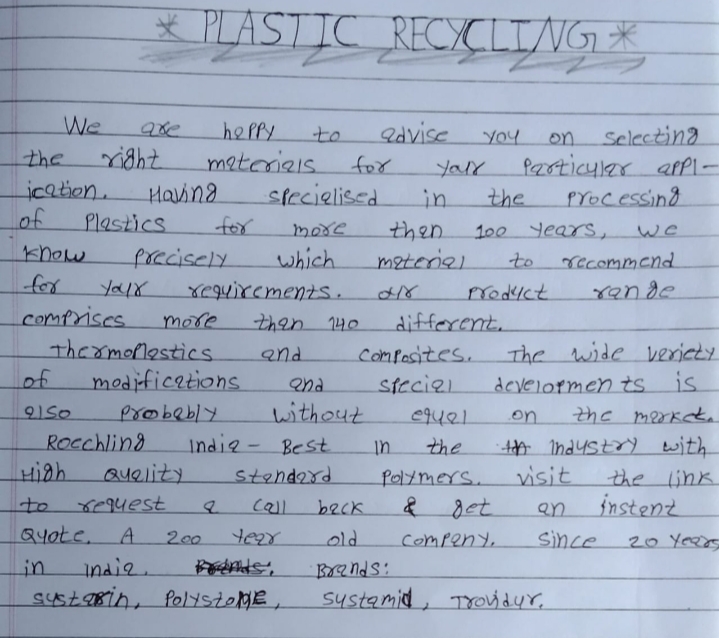 * PLASTIC RECYCLING *
We are happy to advise you on selecting
the right materials for your particular appl-
ication. Having specialised in the processing
of Plastics for more than 100 years, we
know precisely which material to recommend
for your requirements. our product range
comprises more than 140 different.
thermoplastics and composites. The wide variety
of modifications and special developments is
also probably without equal on the market.
Roechling india - Best in the industry with
High quality standard polymers. visit the link
to request a call back & get an instant
Quote. A 200 year old company. Since 20 years
in india. Brands:
sustarin, Polystone, sustamid, Trovidur.